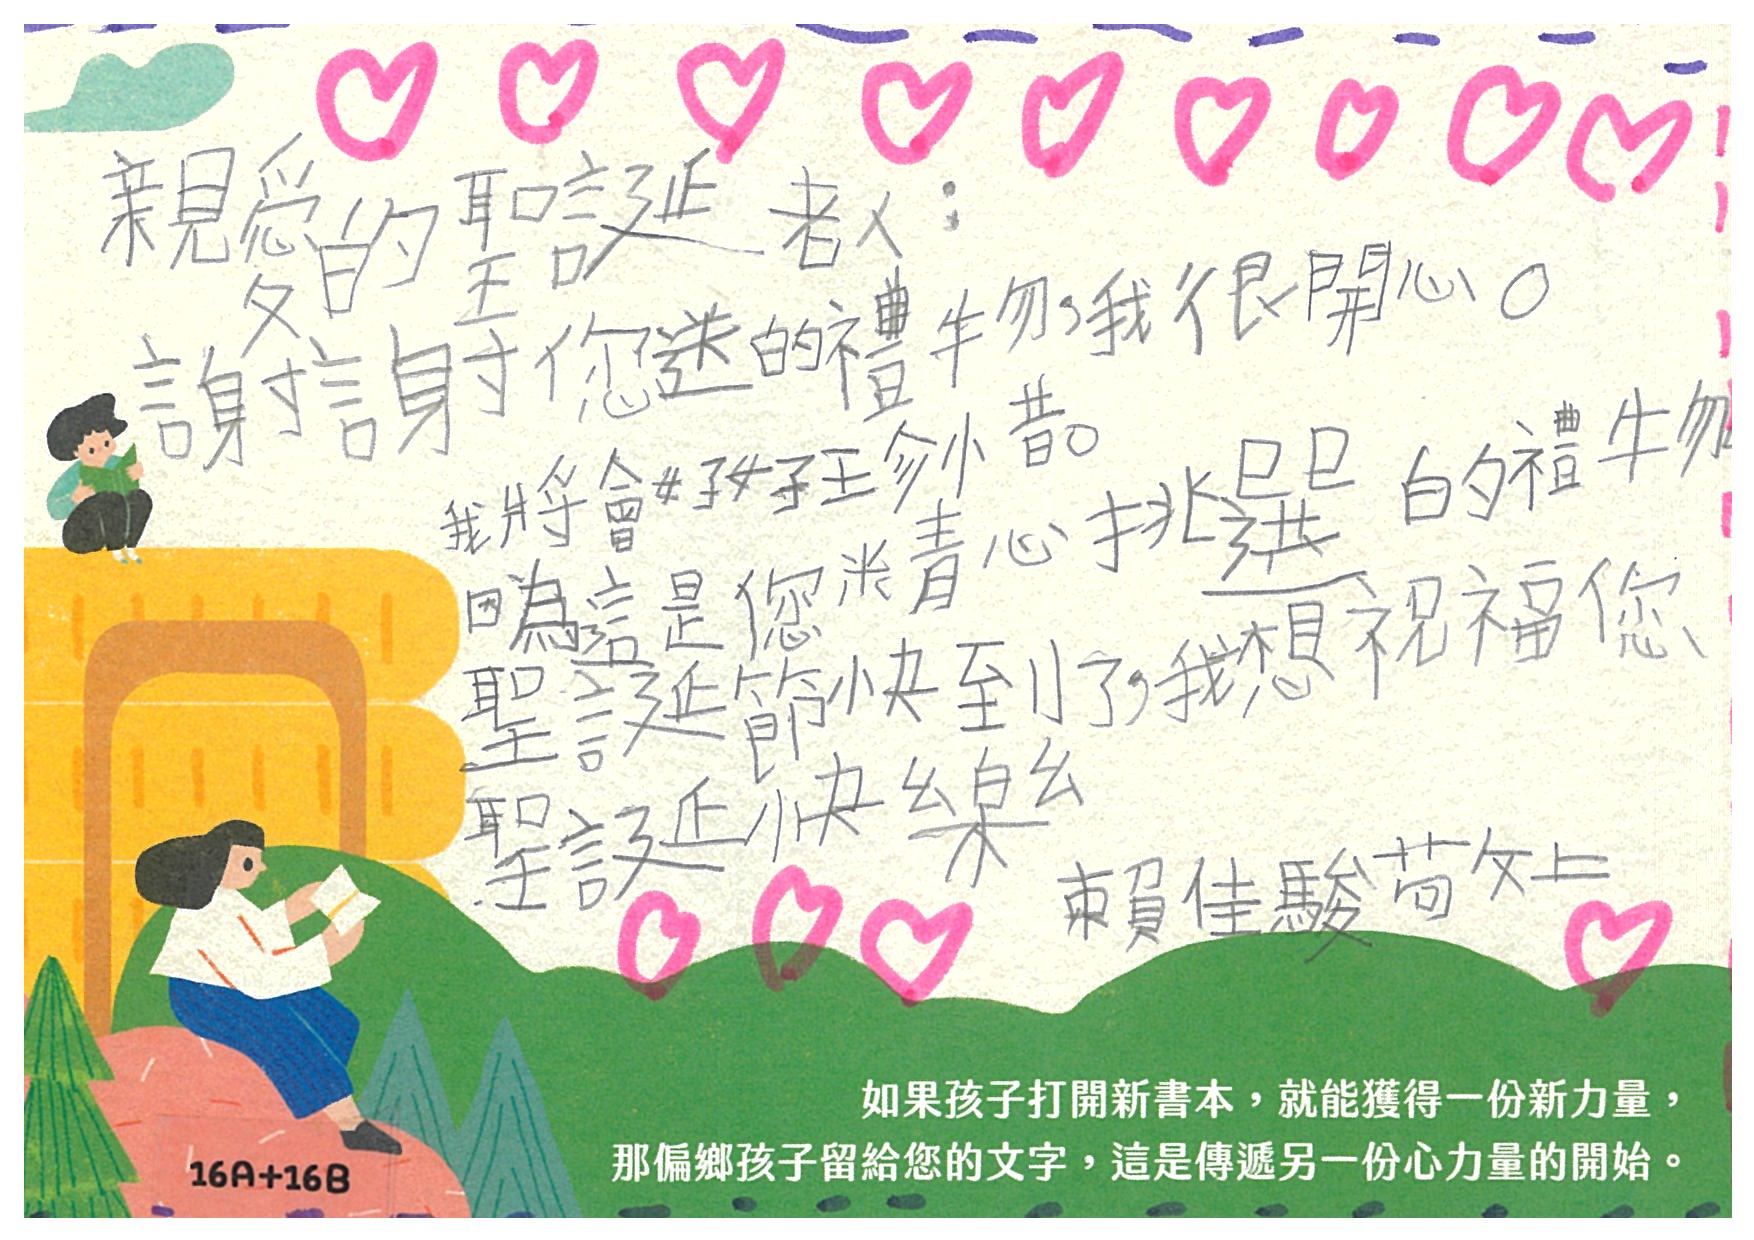 親愛的聖誕老人：
謝謝您送的禮物，我很開心。
我將會好好珍惜。
因為這是您精心挑選的禮物
聖誕節快到了，我想祝福您、
聖誕快樂
賴佳駿敬上
如果孩子打開新書本，就能獲得一份新力量，
那偏鄉孩子留給您的文字，這是傳遞另一份心力量的開始。
16A+16B